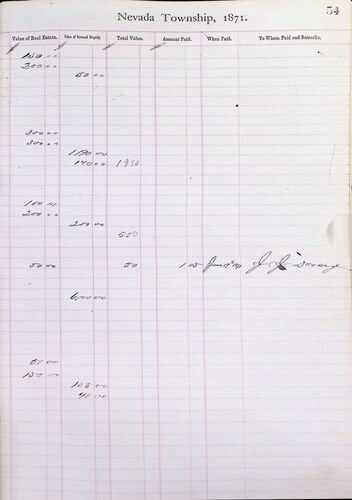 54
Nevada Township, 1871.
Value of Real Estate. Value of Personal Property. Total Value. Amount Paid. When Paid. To Whom Paid and Remarks.
150 00
200 00
50 00
300 00
300 00
140 00
100 00
200 00
200 00
500
50 00 50 1 05 J J
600 00
50 00
150 00
135 00
40 00